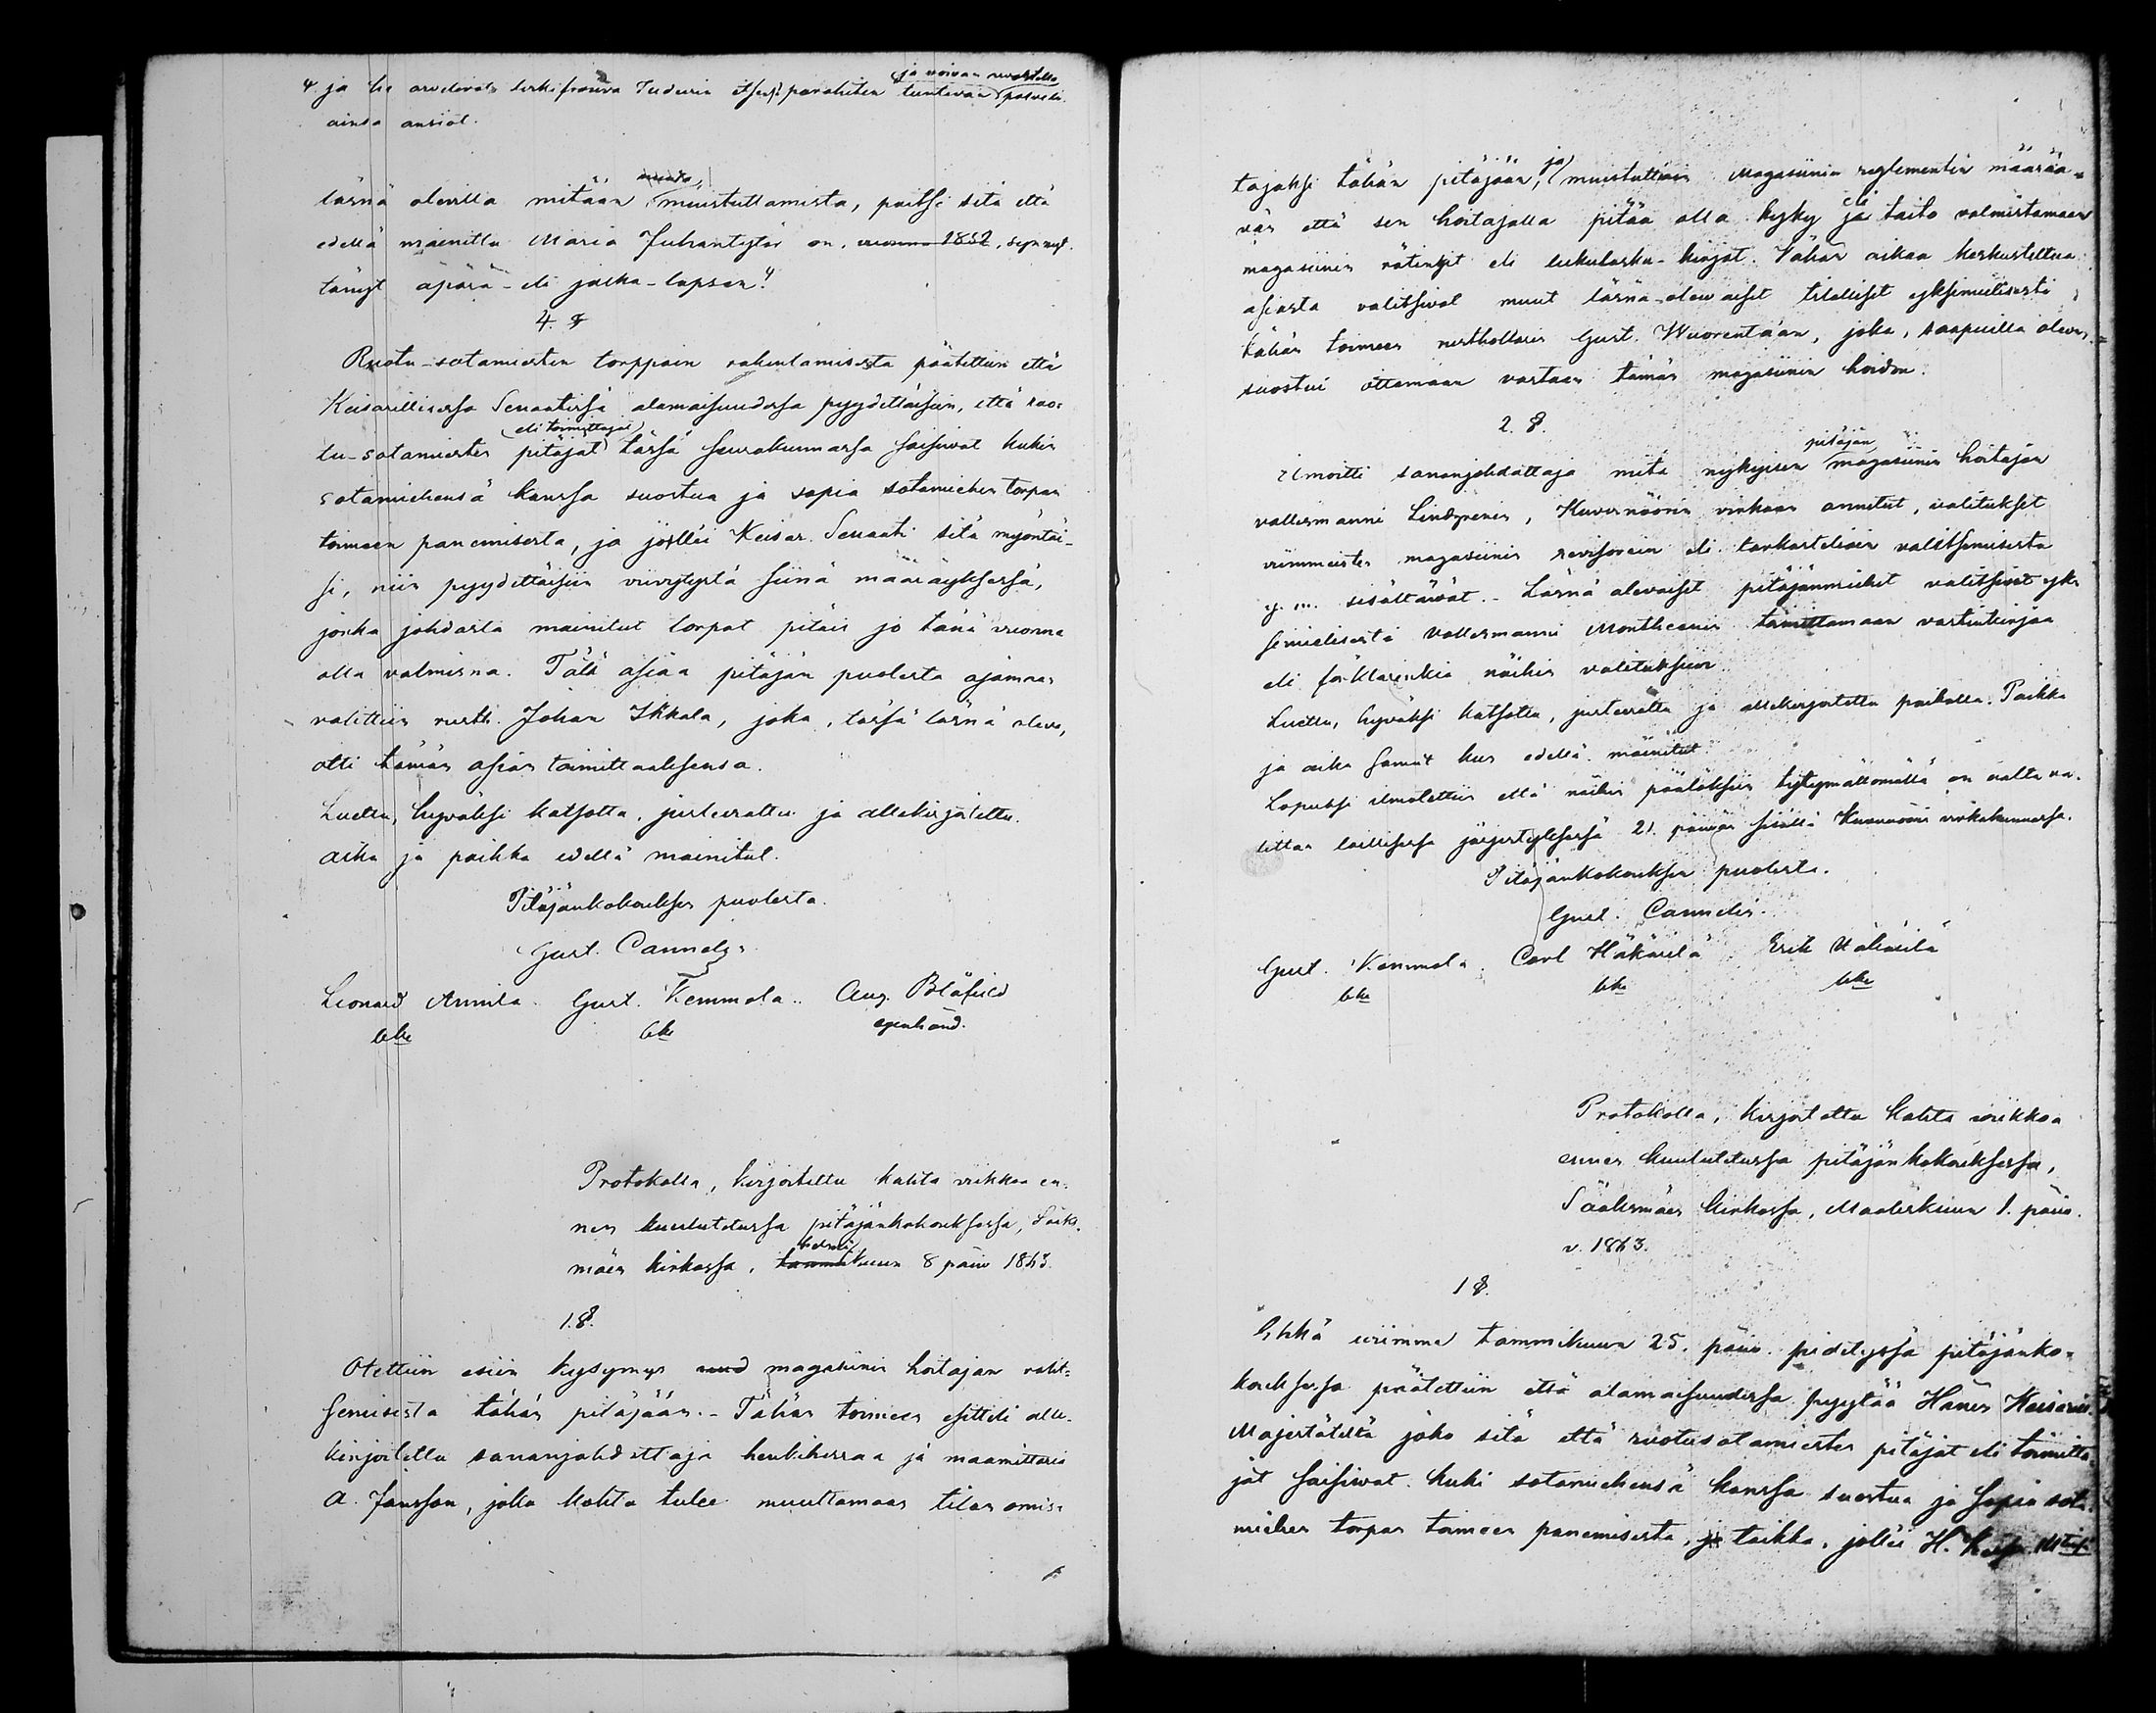 ja voivan
4. ja he arvelivat leskifrouva Tudurin itse parahiten tuntevan palveli-
ainsa ansiot.
läsnä olevilla mitään muistuttamista, paitsi sitä että
edellä mainittu Maria Juhantytär on, vuonna 1852, synnyt-
tänyt äpärä- eli jalka-lapsen."
4. §
Ruotu-sotamiesten torppain rakentamisesta päätettiin että
Keisarillisessa Senaatissa alamaisuudessa pyydettäisiin, että ruo-
eli toimittajat
tu-sotamiesten pitäjät tässä seurakunnassa saisivat kukin
sotamiehensä kanssa suostua ja sopia sotamiehen torpan
toimeen panemisesta, ja jollei Keisar. Senaati sitä myöntäi-
si, niin pyydettäisiin viivytystä siinä määräyksessä,
jonka johdosta mainitut torpat pitäis jo tänä vuonna
olla valmisna. Tätä asiaa pitäjän puolesta ajamaan
valittiin rusth. Johan Ikkala, joka, tässä läsnä oleva,
otti tämän asian toimittaaksensa.
Luettu, hyväksi katsottu, justeerattu ja allekirjoitettu.
aika ja paikka edellä mainitut.
Pitäjänkokouksen puolesta.
Gust. Cannelin
Leonard Annila. Gust. Kemmola. Aug. Blåfield
egenhänd.
Protokolla, kirjoitettu kahta viikkoa en-
nen kuulutetussa pitäjänkokouksessa, Sääks-
helmi
mäen kirkossa, tammikuun 8 päiv 1863.
1. §.
Otettiin esiin kysymys uud magasiinin hoitajan valit-
semisesta tähän pitäjään.- Tähän toimeen esitteli alle-
kirjoitettu sananjohdattaja henkikirraa ja maamittaria
A. Jansson, joka kohta tulee muuttamaan tilan omis-
tajaksi tähän pitäjään, ja muistuttain Magasiinin reglementin määrää-
vän että sen hoitajalla pitää olla kyky ja taito valmistamaan
magasiinin rätingit eli lukulasku-kirjat. Vähän aikaa keskusteltua
asiasta valitsivat muut läsnä-olewaiset tilalliset yksimielisesti
tähän toimeen rusthollarin Gust. Wuorentaan, joka, saapuilla oleva,
suostui ottamaan vastaan tämän magasiinin hoidon.
2. §.
pitäjän
Ilmoitti sananjohdattaja mitä nykyisen magasiinin hoitajan
vallesmanni Lindgrenin, Kuvernöörin virkaan annetut, valitukset
viimmeisten magasiinin revisorein eli tarkastelioin valitsemisesta
y. m. sisältäwät.- Läsnä olevaiset pitäjänmiehet valitsivat yk-
simielisesti vallesmanni Montheenin toimittamaan vastinkirjaa
eli förklarinkia näihin valituksiin.
Luettu, hyväksi katsottu, justeerattu ja allekirjoitettu paikalla. Paikka
ja aika samat kun edellä mainitut.
Lopuksi ilmoitettiin että näihin päätöksiin tyytymättömällä on valta va-
littaa laillisessa järjestyksessä 21. päivän sisällä Kuvernöörin virkakunnassa.
Pitäjänkokouksen puolesta.
Gust. Cannelin.
Gust. Kemmola. Carl Häkäilä Erik Uotila
Protokolla, kirjoitettu kahta viikkoa
ennen kuulutetussa pitäjänkokouksessa,
Sääksmäen kirkossa, Maaliskuun 1. päiv.
v. 1863.
1 §.
Ehkä viimme tammikuun 25. päiv. pidetyssä pitäjänko-
kouksessa päätettiin että alamaisuudessa pyytää Hänen Keisarill.
Majestätiltä joko sitä että ruotusotamiesten pitäjät eli toimitta-
jat saisivat kuki sotamiehensä kanssa suostua ja sopia sota-
miehen torpan toimeen panemisesta, taikka, jollei H. Keis. Maj: